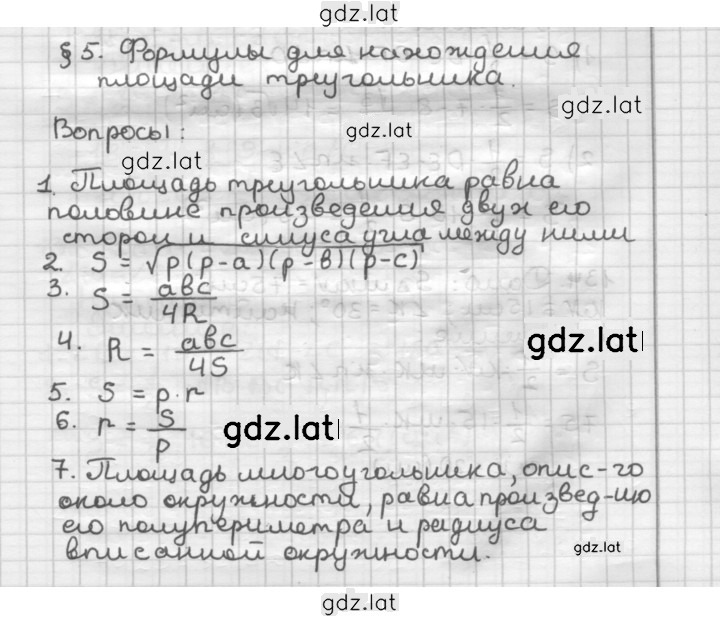 gdz.lat
§ 5. Формулы для нахождения
площади треугольника.
gdz.lat
Вопросы:
gdz.lat
gdz.lat
1. Площадь треугольника равна
половине произведения двух его
сторон и синуса угла между ними
2. S = √p(p-a)(p-b)(p-c)
3. S = abc/4R
4. R = abc/4S
gdz.lat
5. S = p·r
6. r = S/p
gdz.lat
7. Площадь многоугольника, опис-го
около окружности, равна произвед-ию
его полупериметра и радиуса
вписанной окружности.
gdz.lat
gdz.lat